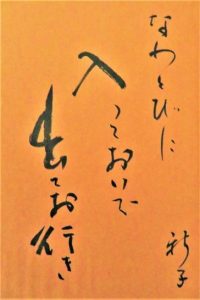 なわとびに
入っておいで
出てお行き
新子